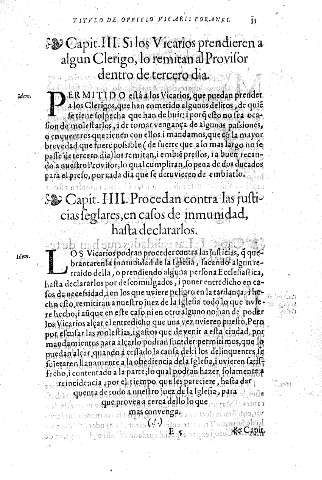 TITVLO DE OFFICIO VICARII FORANEI. 33
Capit. III. Si los Vicarios prendieren a
algun Clerigo, lo remitan al Provisor
dentro de tercero dia.
Idem.
PERMITIDO está a los Vicarios, que puedan prender
a los Clerigos, que han cometido algunos delitos, de quiẽ
se tiene sospecha que han de huir; i porq̃ esto no sea oca-
sion de molestarlos, i de tomar vengança de algunas passiones,
o encuentros que tienen con ellos: mandamos, que cõ la mayor
brevedad que fuere possible (de suerte que a lo mas largo no se
passe de tercero dia) los remitan, i embiẽ pressos, i a buen recau-
do a nuestro Provisor, lo qual cumpliran, so pena de dos ducados
para el presso, por cada dia que se detuvieren de embiarlo.
Capit. IIII. Procedan contra las justi-
cias seglares, en casos de inmunidad,
hasta declararlos.
Idem.
LOS Vicarios podran proceder contra las justicias, q̃ que-
brantaren la inmunidad de la Iglesia, sacando algun re-
traido della, o prendiendo alguna persona Ecclesiastica,
hasta declararlos por descomulgados, i poner entredicho en ca-
sos de necessidad, i en los que uviere peligro en la tardança; i he-
cho esto, remitiran a nuestro juez de la Iglesia todo lo que uvie-
re hecho, i aunque en este caso ni en otro alguno no han de poder
los Vicarios alçar el entredicho que una vez uvieren puesto. Pero
por escusar las molestias, i costas de venir a esta ciudad, por
mandamientos para alçarlo podran suceder permitimos, que lo
puedan alçar, quando a cessado la causa del; i los delinquentes se
sujetaren llanamente a la obediencia de la Iglesia, i uvieren satis-
fecho, i contentado a la parte; lo qual podran hazer solamente a
reincidencia, por el tiempo que les pareciere, hasta dar
quenta de todo a nuestro juez de la Iglesia, para
que provea acerca dello lo que
mas convenga.
(.?.)
E 5 Capit.